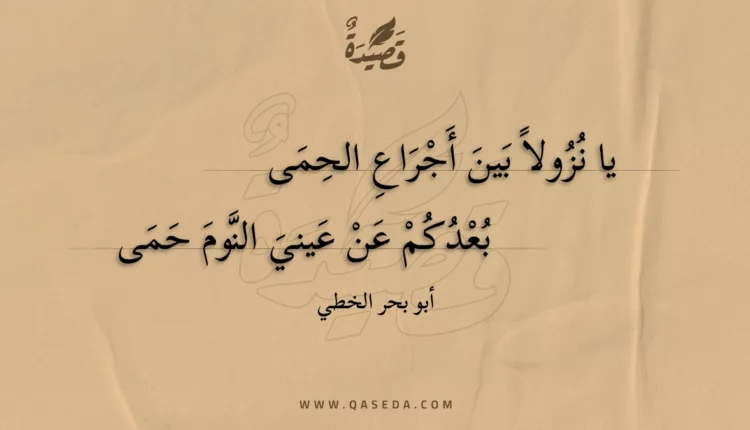 قَصِيْدَةٌ
يا نُزُولاً بَينَ أَجْرَاعِ الحِمَى
بُعْدُكُمْ عَنْ عَينيَ النَّومَ حَمَى
أبو بحر الخطي
WWW.QASEDA.COM